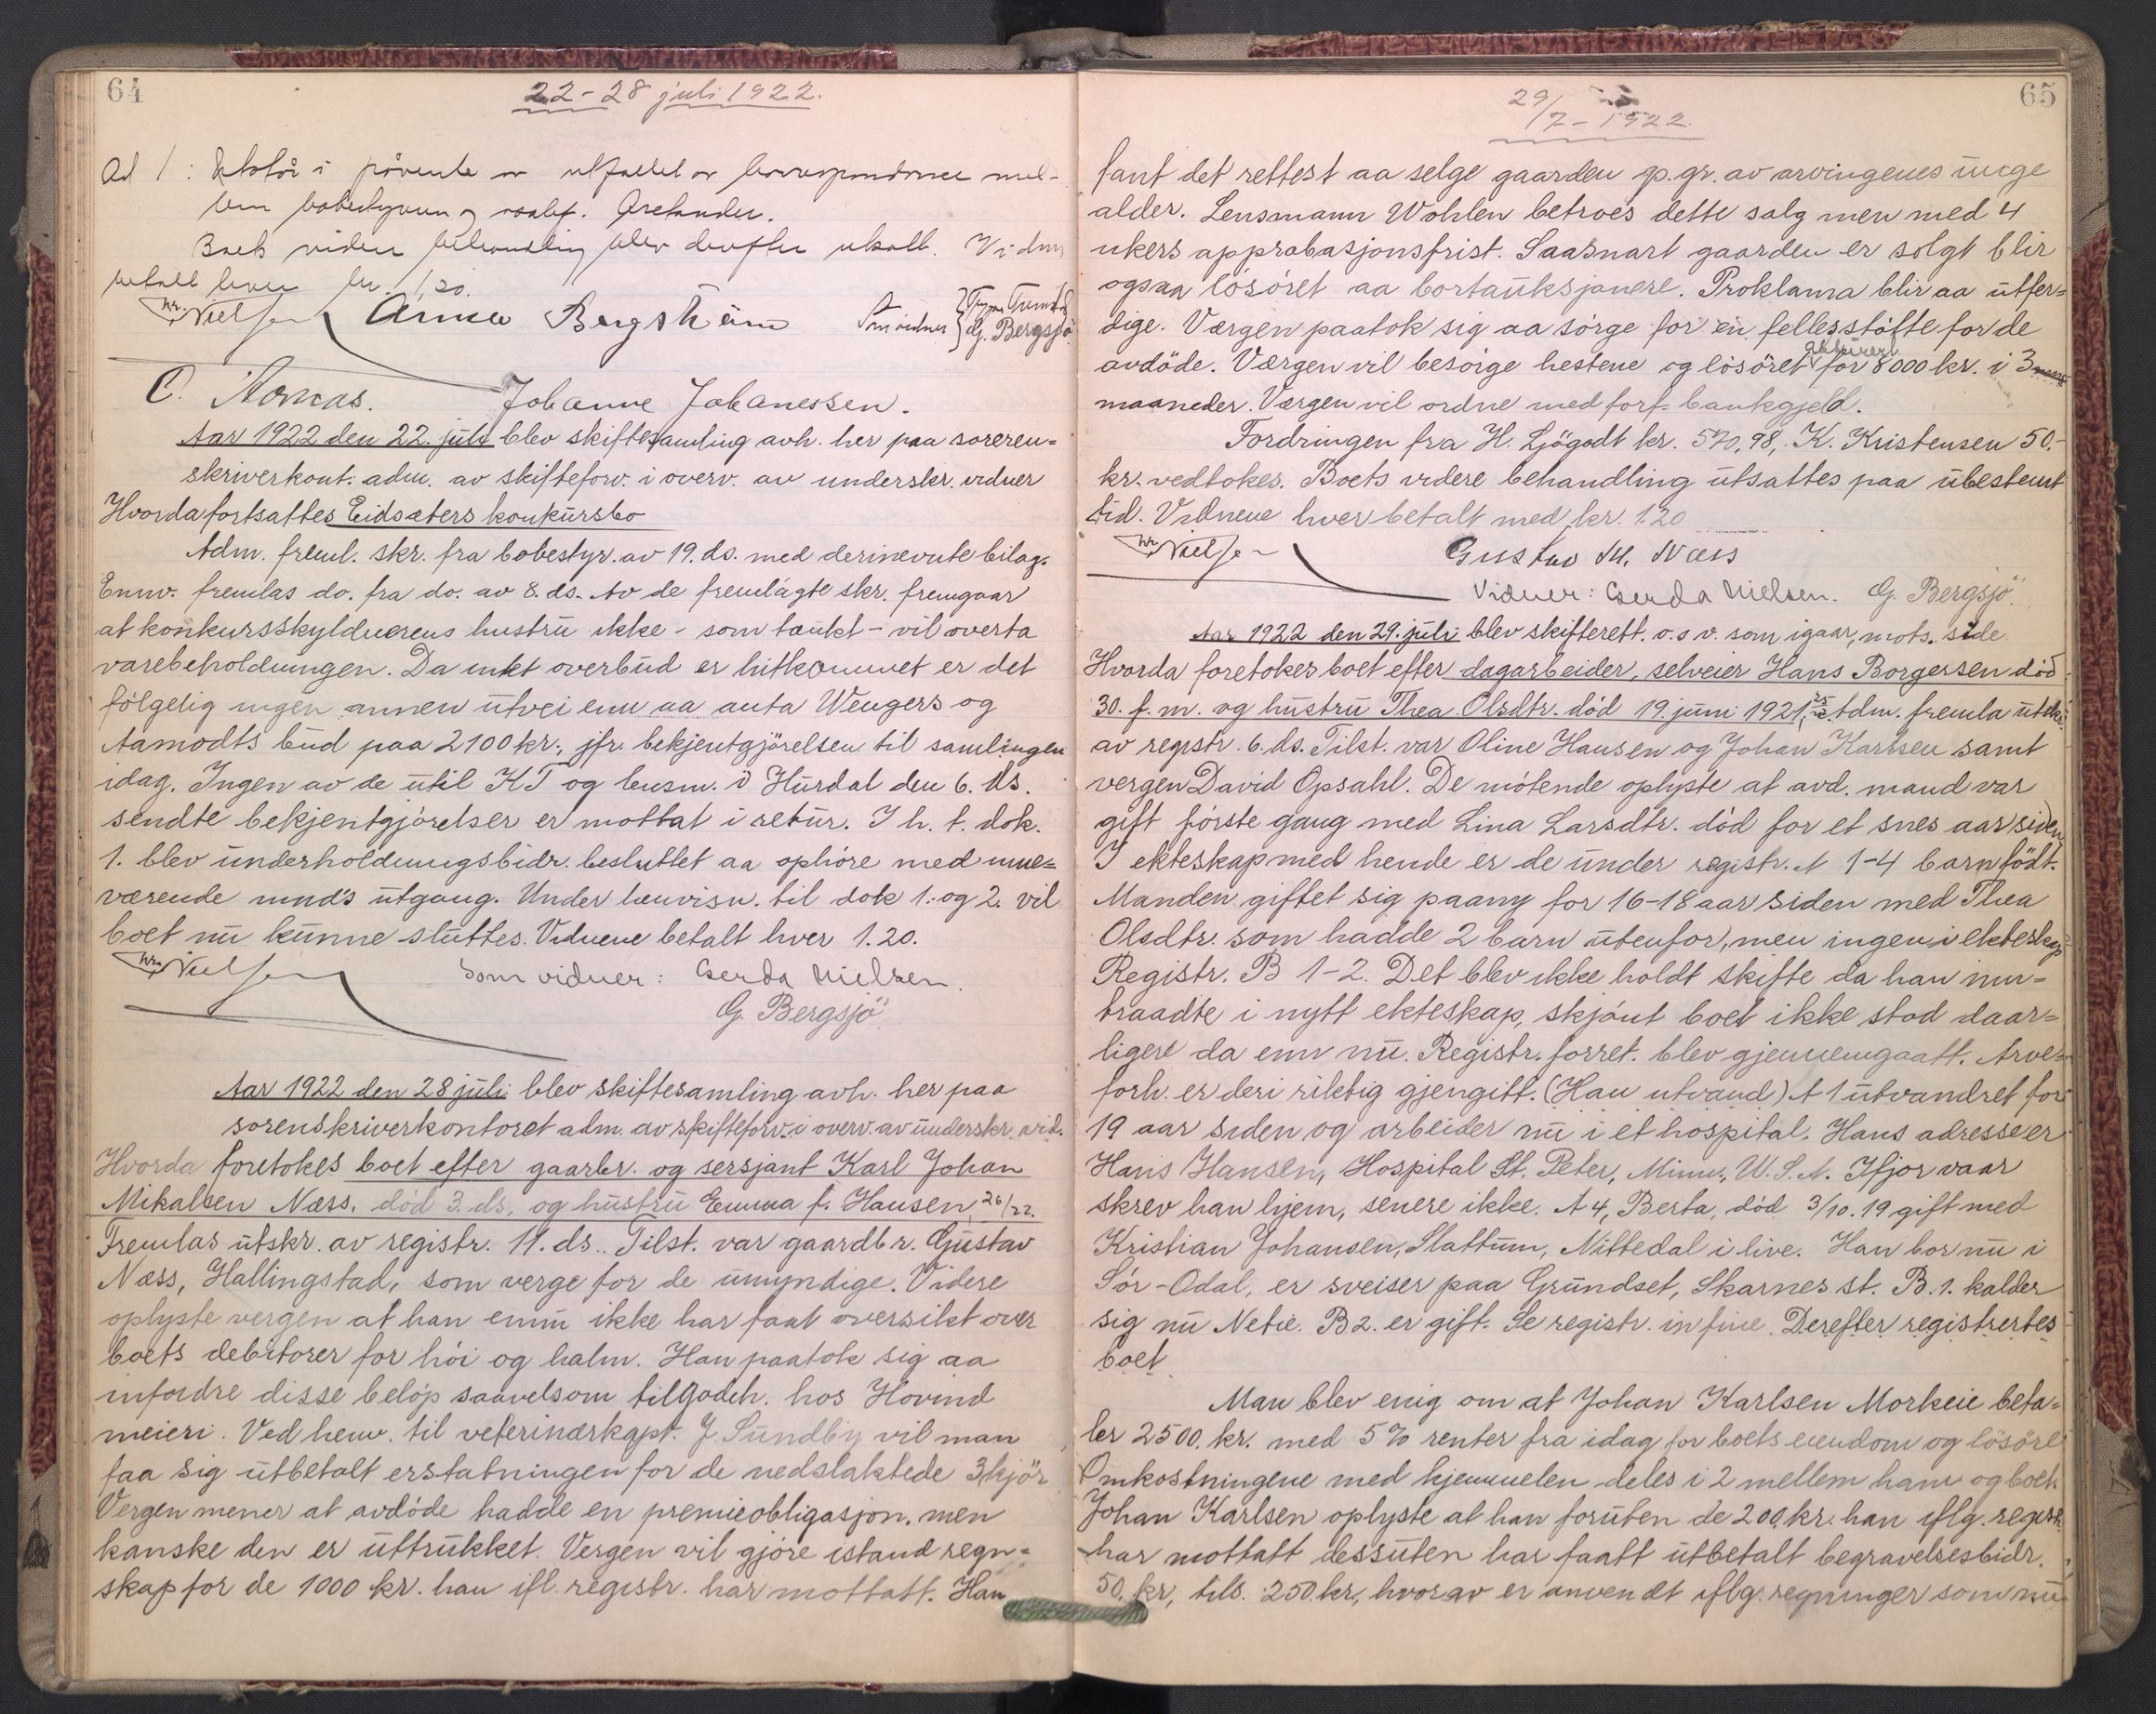 64
22-28 juli 1922.
Ad 1: Utstår i påvente av utfaldet av korrespondance mel-
lem bobestyreren og
Boets videre behandling blev derefter utsatt. Vidner
betalt hver kr. 1,20.
Nielsen Anna Bergstrøm Som vidner G. Bergsjö
C. Johanne Johanessen.
Aar 1922 den 22. juli blev skiftesamling avh. her paa soreren-
skriverkont. adm. av skifteforv. i overv. av underskr. vidner
Hvorda fortsattes Eidsæters konkursbo
Adm. freml. skr. fra bobestyr. av 19. ds. med derinevnte bilag.
Ennv. fremlas do. fra do. av 8. ds. Av de fremlagte skr. fremgaar
at konkursskylduerens hustru ikke - som tænkt - vil overta
varebeholdningen. Da intet overbud er hitkommet er det
fölgelig ingen annen utvei enn aa anta Wengers og
Aamodts bud paa 2100 kr., jfr. bekjentgjörelsen til samlingen
idag. Ingen av de util KT og lensm. i Hurdal den 6. ds.
sendte bekjentgjörelser er mottat i retur. I h. t. dok.
1. blev underholdningsbidr. besluttet aa ophöre med inne-
værende mnds utgang. Under henvisn. til dok 1. og 2. vil
boet nu kunne sluttes. Vidnene betalt hver 1.20.
Nielsen Som vidner: Gerda Nielsen.
G. Bergsjö
Aar 1922 den 28 juli blev skiftesamling avh. her paa
sorenskriverkontoret adm. av skifteforv. i overv. av underskr. vid.
Hvorda foretokes boet efter gaarbr. og sersjant Karl Johan
Mikalsen Næss, död 3. ds. og hustru Emma f. Hansen, 26/22.
Fremlas utskr. av registr. 11. ds.. Tilst. var gaardbr. Gustav
Næss, Hallingstad, som verge for de umyndige. Videre
oplyste vergen at han ennu ikke har faat oversikt over
boets debitorer for höi og halm. Han paatok sig aa
infordre disse belöp saavelsom tilgodeh. hos Hovind
meieri. Ved henv. til veterinærkapt. J. Sundby vil man
faa sig utbetalt erstatningen for de nedslaktede 3 kjör
Vergen mener at avdöde hadde en premieobligasjon, men
kanske den er uttrukket. Vergen vil gjöre istand regn-
skap for de 1000 kr. han ifl. registr. har mottatt. Han
65
29/7-1922.
fant det rettest aa selge gaarden p. gr. av arvingenes unge
alder. Lensmann Wohlen betroes dette salg men med 4
ukers approbasjonsfrist. Saasnart gaarden er solgt blir
ogsaa lösöret aa bortauksjonere. Proklama blir aa utfer-
dige. Værgen paatok sig aa sörge for en fellesstötte for de
avdöde. Værgen vil besörge hestene og lösöret assurert for 8000 kr. i 3
maaneder. Værgen vil ordne med forf. bankgjeld.
Fordringen fra H. Ljögodt kr. 570,98, K. Kristensen 50.-
kr. vedtokes. Boets videre behandling utsattes paa ubestemt
tid. Vidnene hver betalt med kr. 1.20
Nielsen Gustav M. Næss
Vidner: Gerda Nielsen. G. Bergsjö.
Aar 1922 den 29. juli blev skifterett. o. s. v. som igaar, mots. side.
Hvorda foretokes boet efter dagarbeider, selveier Hans Borgersen död
30. f. m. og hustru Thea Olsdtr. död 19. juni 1921. Adm. fremla utskr.
av registr. 6. ds. Tilst. var Oline Hansen og Johan Karlsen samt
vergen David Opsahl. De mötende oplyste at avd. mand var
gift förste gang med Lina Larsdtr. död for et snes aar siden
I ekteskap med hende er de under registr. A 1-4 barn födt.
Manden giftet sig paany for 16-18 aar siden med Thea
Olsdtr. som hadde 2 barn utenfor, men ingen i ekteskap
Registr. B 1-2. Det blev ikke holdt skifte da han inn-
traadte i nytt ekteskap, skjönt boet ikke stod daar-
ligere da enn nu. Registr. forret. blev gjennemgaatt. Arve-
forh. er deri riktig gjengitt. (Hau utvand) A 1 utvandret for
19 aar siden og arbeider nu i et hospital. Hans adresse er
Hans Hansen, Hospital St. Peter, Minn., U. S. A. Ifjor vaar
skrev han hjem, senere ikke. A 4, Berta, död 3/10.19 gift med
Kristian Johansen, Slattum, Nittedal i live. Han bor nu i
Sör-Odal, er sveiser paa Grundset, Skarnes st. B. 1. kalder
sig nu Netie. B 2. er gift. Se registr. in fine. Derefter registrertes
boet
Man blev enig om at Johan Karlsen Morkeie beta-
ler 2500 kr. med 5% renter fra idag for boets eiendom og lösöre
Omkostningene med hjemmelen deles i 2 mellem ham og boet.
Johan Karlsen oplyste at han foruten de 200 kr. han iflg. registr.
har mottatt dessuten har faatt utbetalt begravelsesbidr.
50. kr, tils. 250 kr., hvorav er anvendt iflg. regninger som nu